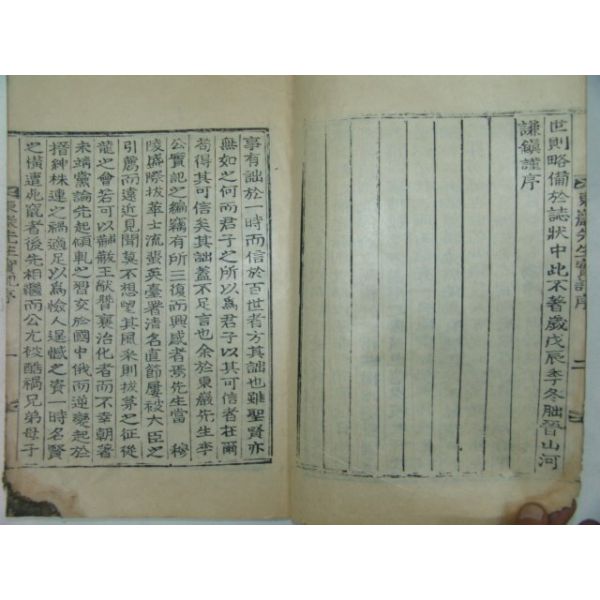 世則略備於誌狀中此不著歲戊辰季冬朏晉山河
謙鎭謹序
東巖先生實記序
二
事有詘於一時而信於百世者方其詘也雖聖賢亦
無如之何而君子之所以爲君子以其可信者在爾
苟得其可信矣其詘蓋不足言也余於東巖先生李
公實記之編竊有所三復而興感者焉先生當 穆
陵盛際拔華士流蜚英臺署淸名直節屢被大臣之
引薦而遠近見聞莫不想望其風采則拔茅之征從
龍之會若可以黼黻王猷贊襄治化者而不幸朝著
未靖黨論先起傾軋之習交於國中俄而逆變起於
搢紳株連之禍適足以爲憸人逞憾之資一時名賢
之橫遭兆竄者後先相繼而公尤被酷禍兄弟母子
東巖先生實記序
一